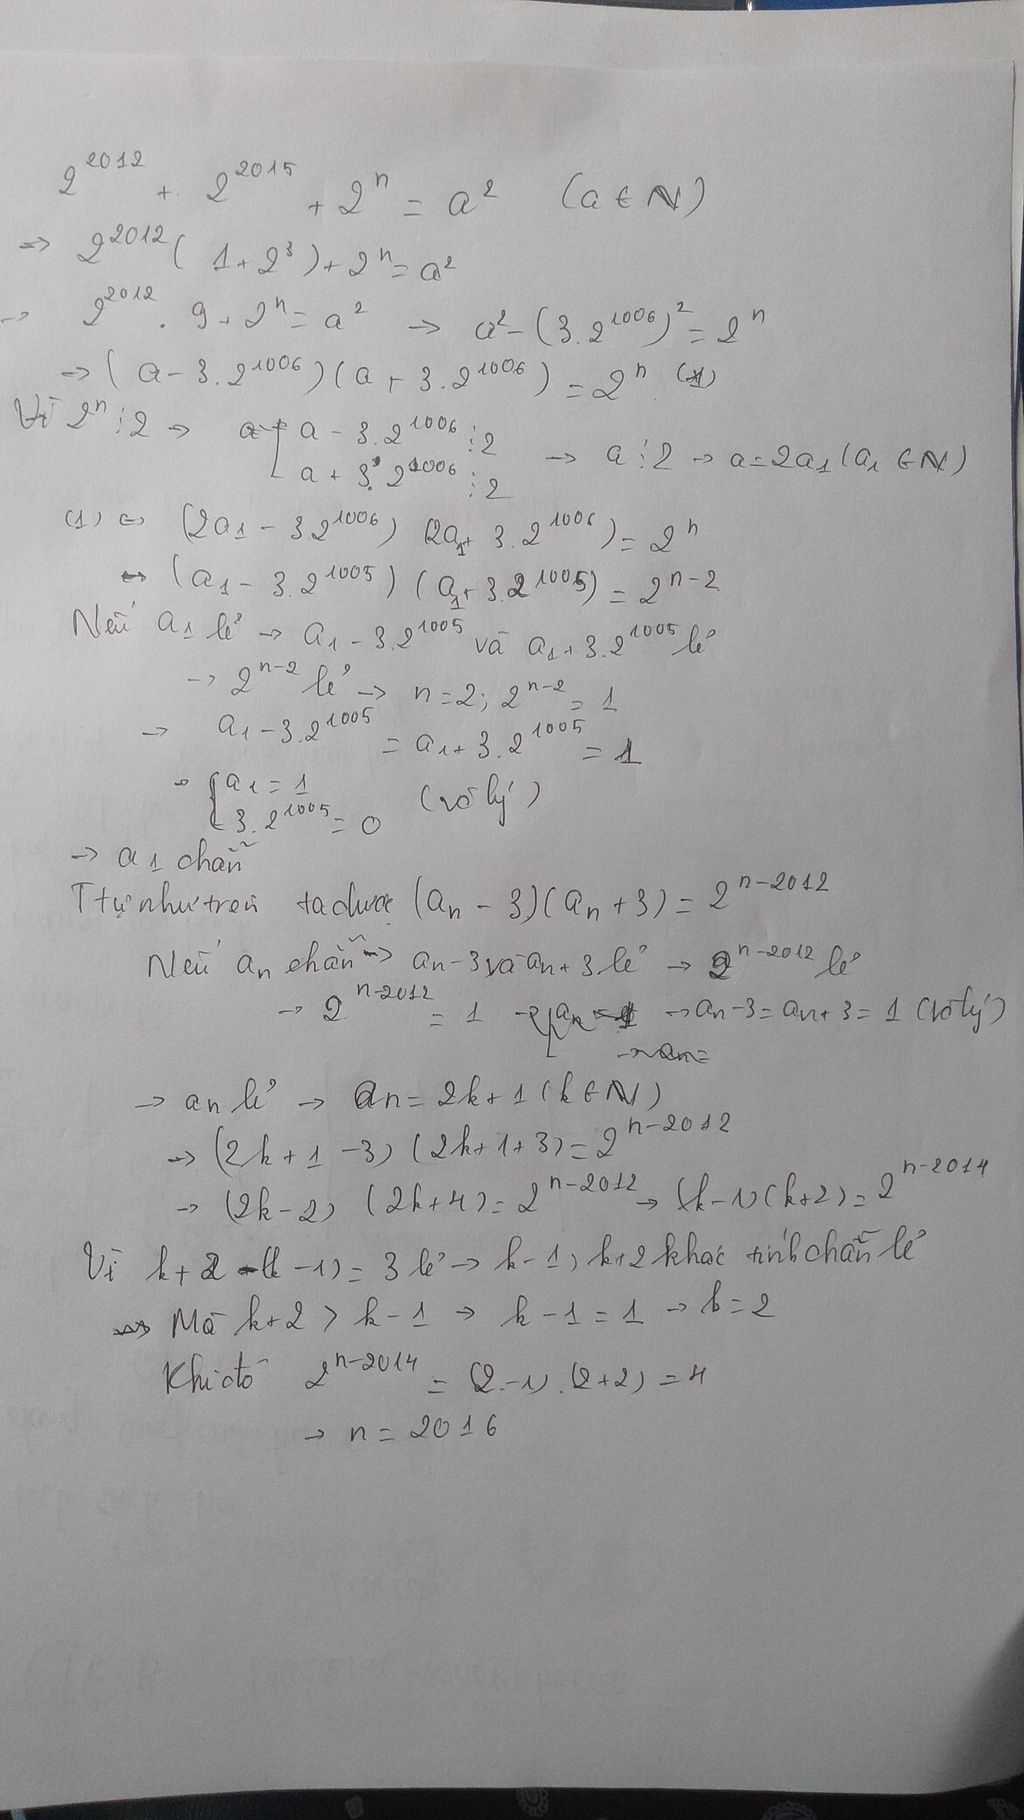 2^2012 + 2^2015 + 2^n = a^2 (a ∈ N)
=> 2^2012 (1+2^3) + 2^n = a^2
-> 2^2012 . 9 + 2^n = a^2 -> a^2 - (3.2^1006)^2 = 2^n
-> (a - 3.2^1006)(a + 3.2^1006) = 2^n (1)
Vì 2^n ⋮ 2 -> [ a - 3.2^1006 ⋮ 2
a + 3.2^1006 ⋮ 2 -> a ⋮ 2 -> a = 2a1 (a1 ∈ N)
(1) <=> (2a1 - 3.2^1006) (2a1 + 3.2^1006) = 2^n
<-> (a1 - 3.2^1005) (a1 + 3.2^1005) = 2^n-2
Nếu a1 lẻ -> a1 - 3.2^1005 và a1 + 3.2^1005 lẻ
-> 2^n-2 lẻ -> n = 2; 2^n-2 = 1
-> a1 - 3.2^1005 = a1 + 3.2^1005 = 1
-> { a1 = 1
3.2^1005 = 0 (vô lý)
-> a1 chẵn
Ttự như trên ta được (an - 3)(an + 3) = 2^n-2012
Nếu an chẵn -> an - 3 và an + 3 lẻ -> 2^n-2012 lẻ
-> 2^n-2012 = 1 -> an - 3 = an + 3 = 1 (vô lý)
-> an =
-> an lẻ -> an = 2k + 1 (k ∈ N)
-> (2k + 1 - 3) (2k + 1 + 3) = 2^n-2012
-> (2k - 2) (2k + 4) = 2^n-2012 -> (k - 1)(k + 2) = 2^n-2014
Vì k + 2 - (k - 1) = 3 lẻ -> k - 1; k + 2 khác tính chẵn lẻ
Mà k + 2 > k - 1 -> k - 1 = 1 -> k = 2
Khi đó 2^n-2014 = (2 - 1).(2 + 2) = 4
-> n = 2016